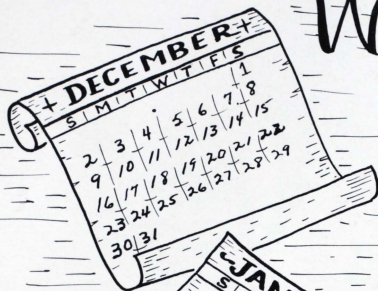 W
+ DECEMBER +
S M T W T F S
1
2 3 4 5 6 7 8
9 10 11 12 13 14 15
16 17 18 19 20 21 22
23 24 25 26 27 28 29
30 31
JAN
S